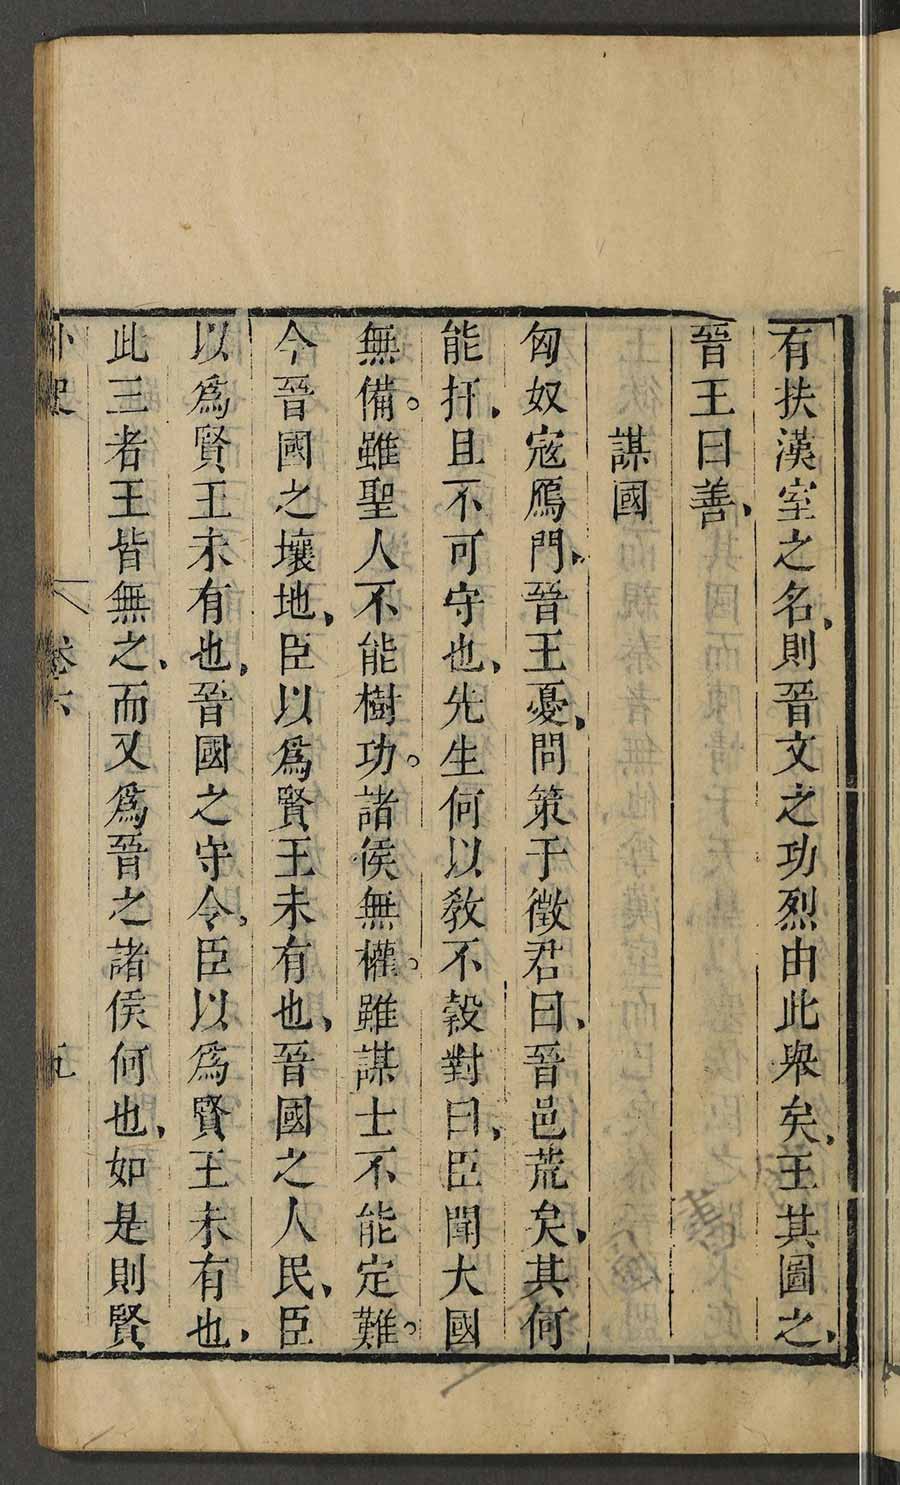 有扶漢室之名、則晉文之功烈由此舉矣、王其圖之、
晉王曰善、
謀國
匈奴寇鴈門、晉王憂、問策于徵君曰、晉邑荒矣、其何
能扞、且不可守也、先生何以敎不穀對曰、臣聞大國
無備。雖聖人不能樹功。諸侯無權。雖謀士不能定難。
今晉國之壤地、臣以爲賢王未有也、晉國之人民、臣
以爲賢王未有也、晉國之守令、臣以爲賢王未有也、
此三者王皆無之、而又爲晉之諸侯何也、如是則賢
外史 卷六